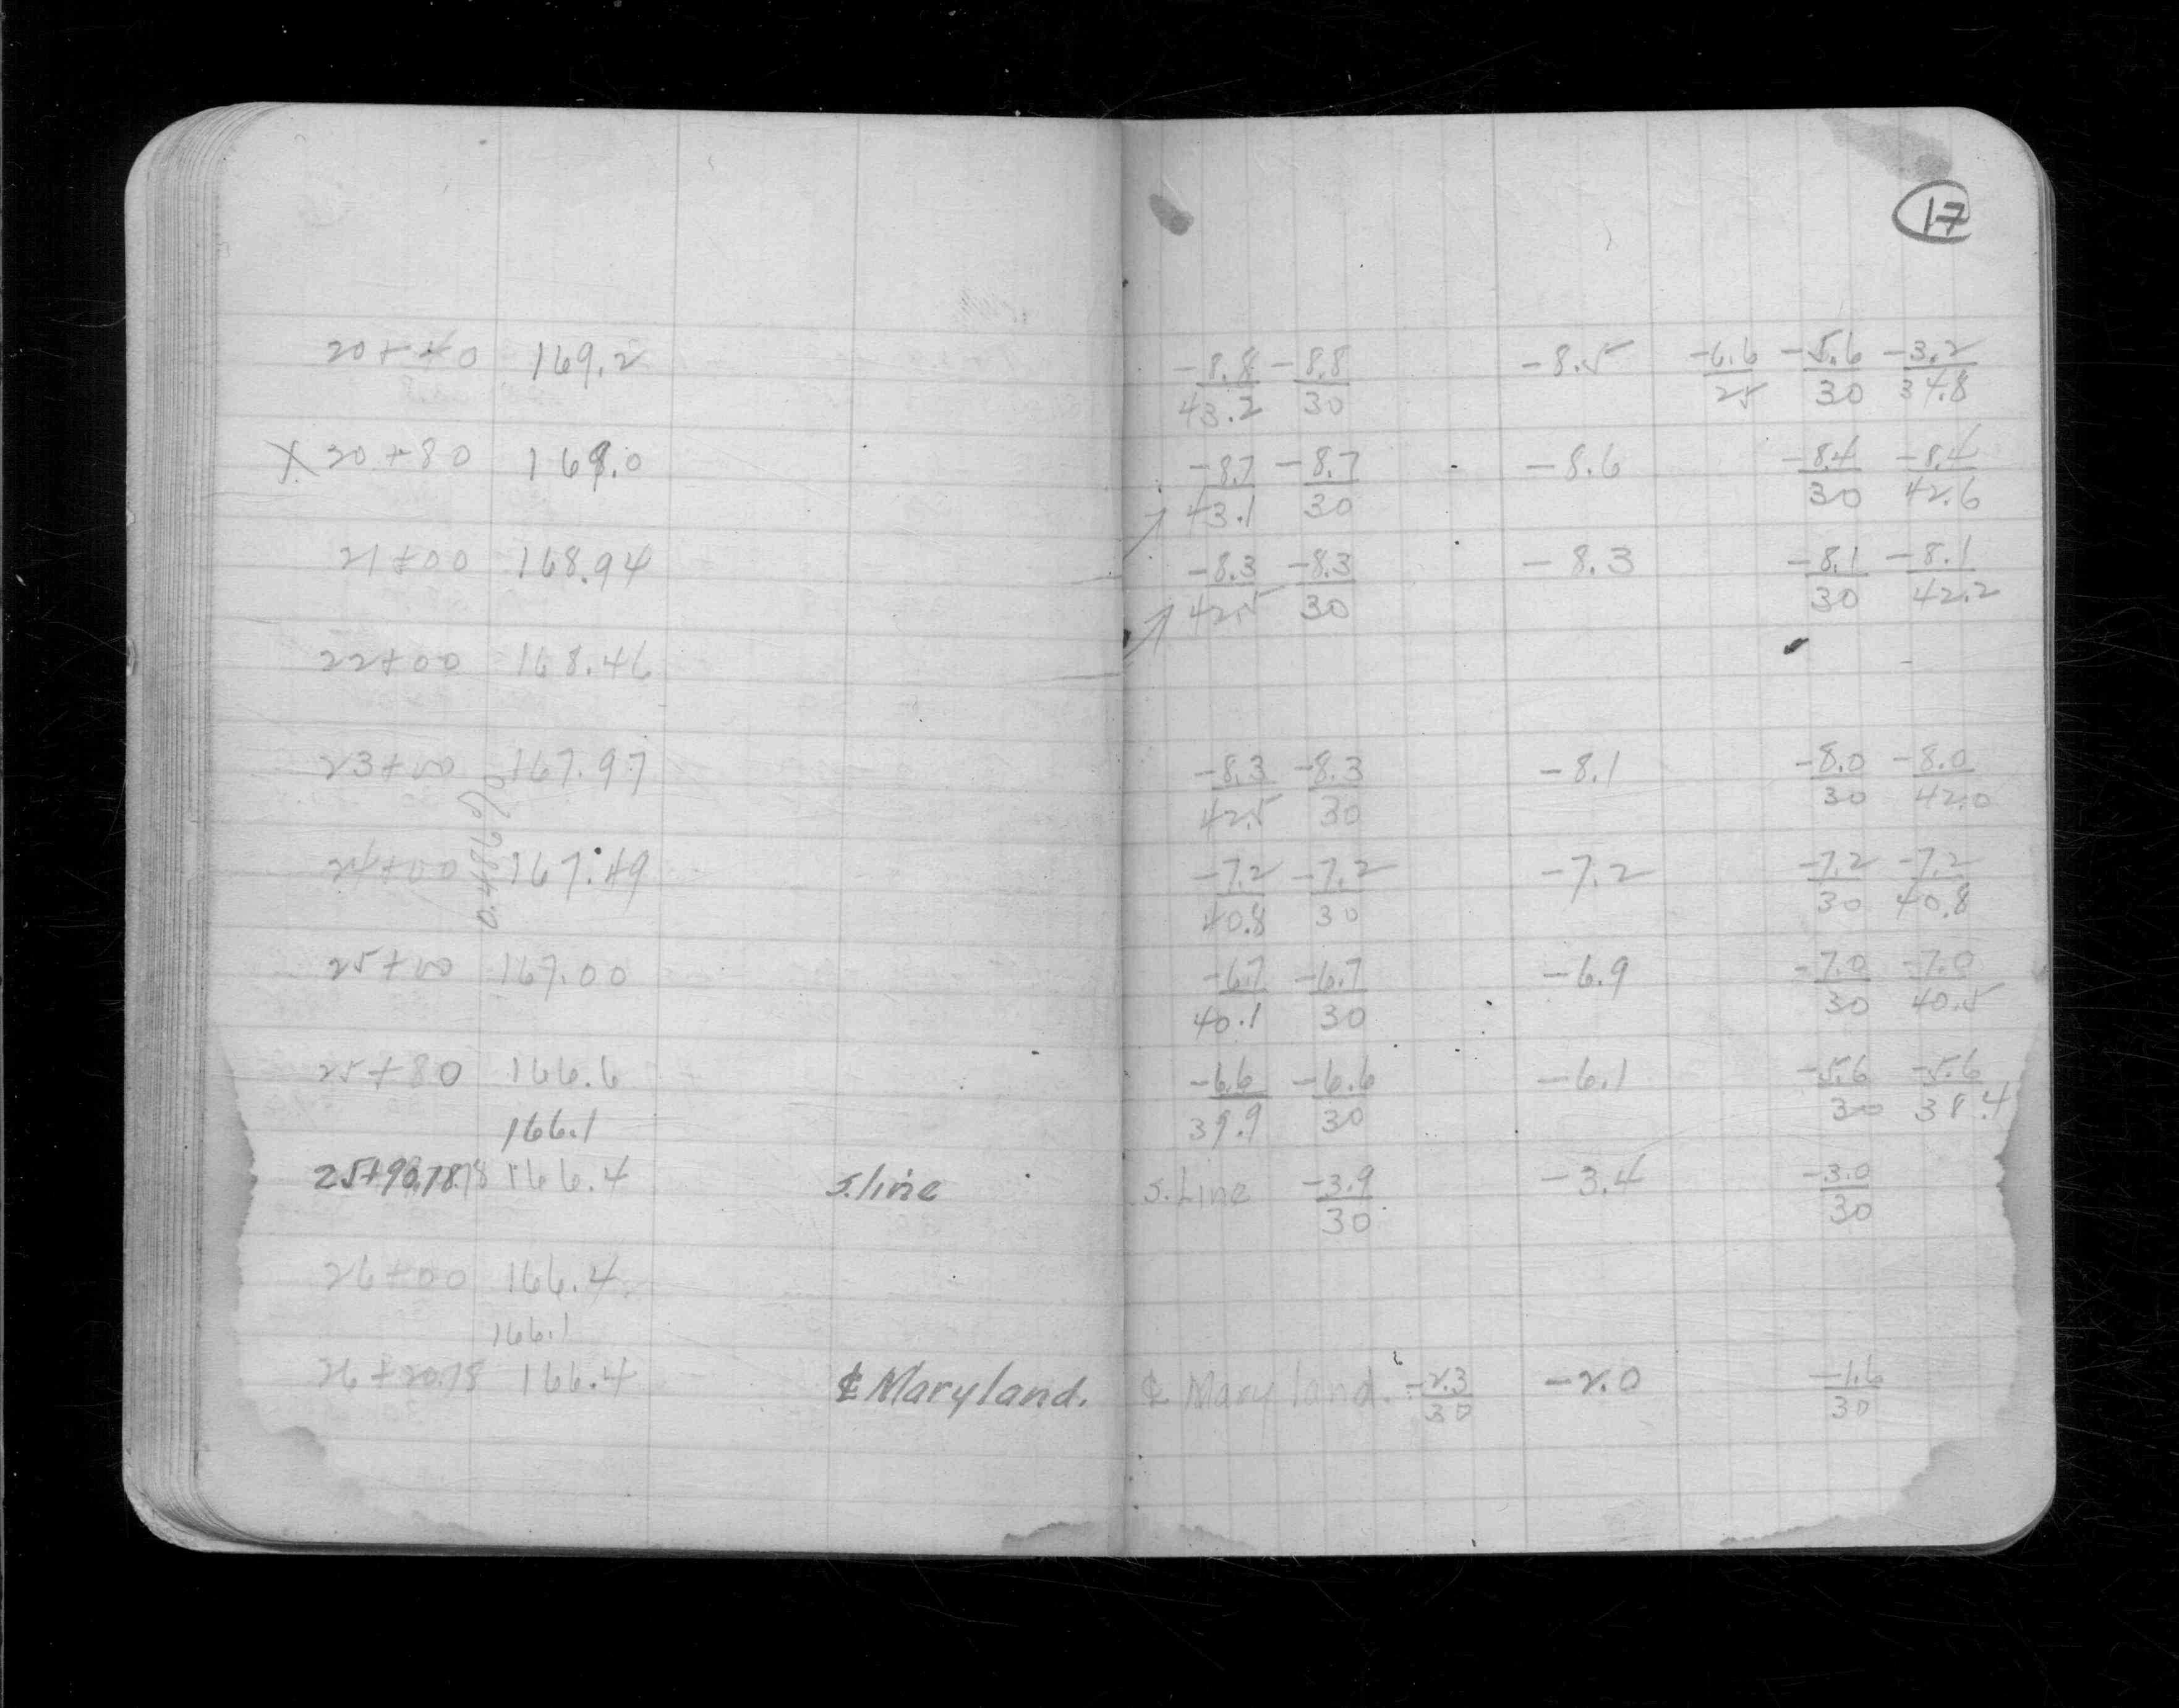 17
20+40 169.2 -8.8/43.2 -8.8/30 -8.5 -6.6/25 -5.6/30 -3.2/34.8
X 20+80 169.0 -8.7/43.1 -8.7/30 -8.6 -8.4/30 -8.4/42.6
21+00 168.94 -8.3/42.5 -8.3/30 -8.3 -8.1/30 -8.1/42.2
22+00 168.46
23+00 167.97 -8.3/42.5 -8.3/30 -8.1 -8.0/30 -8.0/42.0
0.486%
24+00 167.49 -7.2/40.8 -7.2/30 -7.2 -7.2/30 -7.2/40.8
25+00 167.00 -6.7/40.1 -6.7/30 -6.9 -7.0/30 -7.0/40.5
25+80 166.6 -6.6/39.9 -6.6/30 -6.1 -5.6/30 -5.6/38.4
166.1
25+90.78 166.4 S.line S.Line -3.9/30 -3.4 -3.0/30
26+00 166.4
166.1
26+20.78 166.4 ℄ Maryland. ℄ Maryland. -2.3/30 -2.0 -1.6/30